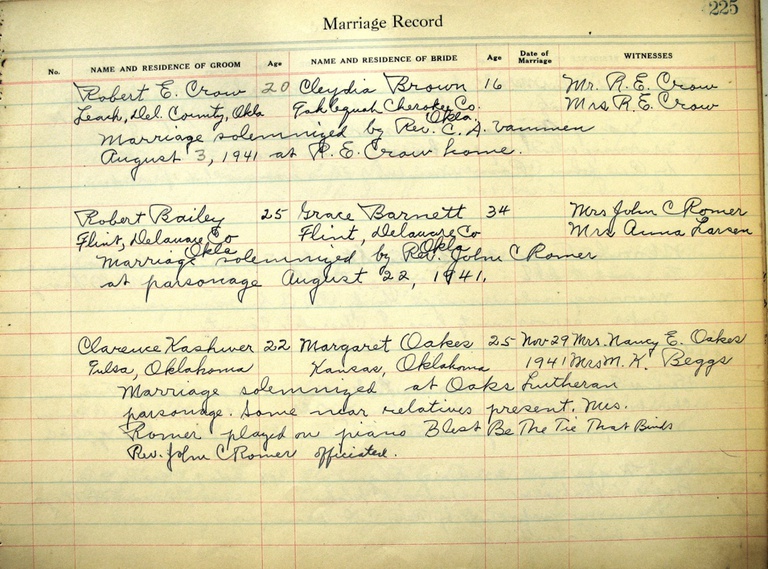 225
Marriage Record
No. NAME AND RESIDENCE OF GROOM Age NAME AND RESIDENCE OF BRIDE Age Date of Marriage WITNESSES
Robert E. Crow 20 Cleydia Brown 16 Mr. R. E. Crow
Leach, Del. County, Okla Tahlequah Cherokee Co. Okla. Mrs R. E. Crow
Marriage solemnized by Rev. C. A. Vammen
August 3, 1941 at R. E. Crow home.
Robert Bailey 25 Grace Barnett 34 Mrs John C Romer
Flint, Delaware Co Okla Flint, Delaware Co Okla Mrs Anna Larsen
Marriage solemnized by Rev. John C Romer
at parsonage August 22, 1941.
Clarence 22 Margaret Oakes 25 Nov 29 Mrs. Nancy E. Oakes
Tulsa, Oklahoma Kansas, Oklahoma 1941 Mrs M. K. Beggs
Marriage solemnized at Oaks Lutheran
parsonage. Some near relatives present. Mrs.
Romer played on piano Blest Be The Tie That Binds
Rev. John C Romer officiated.